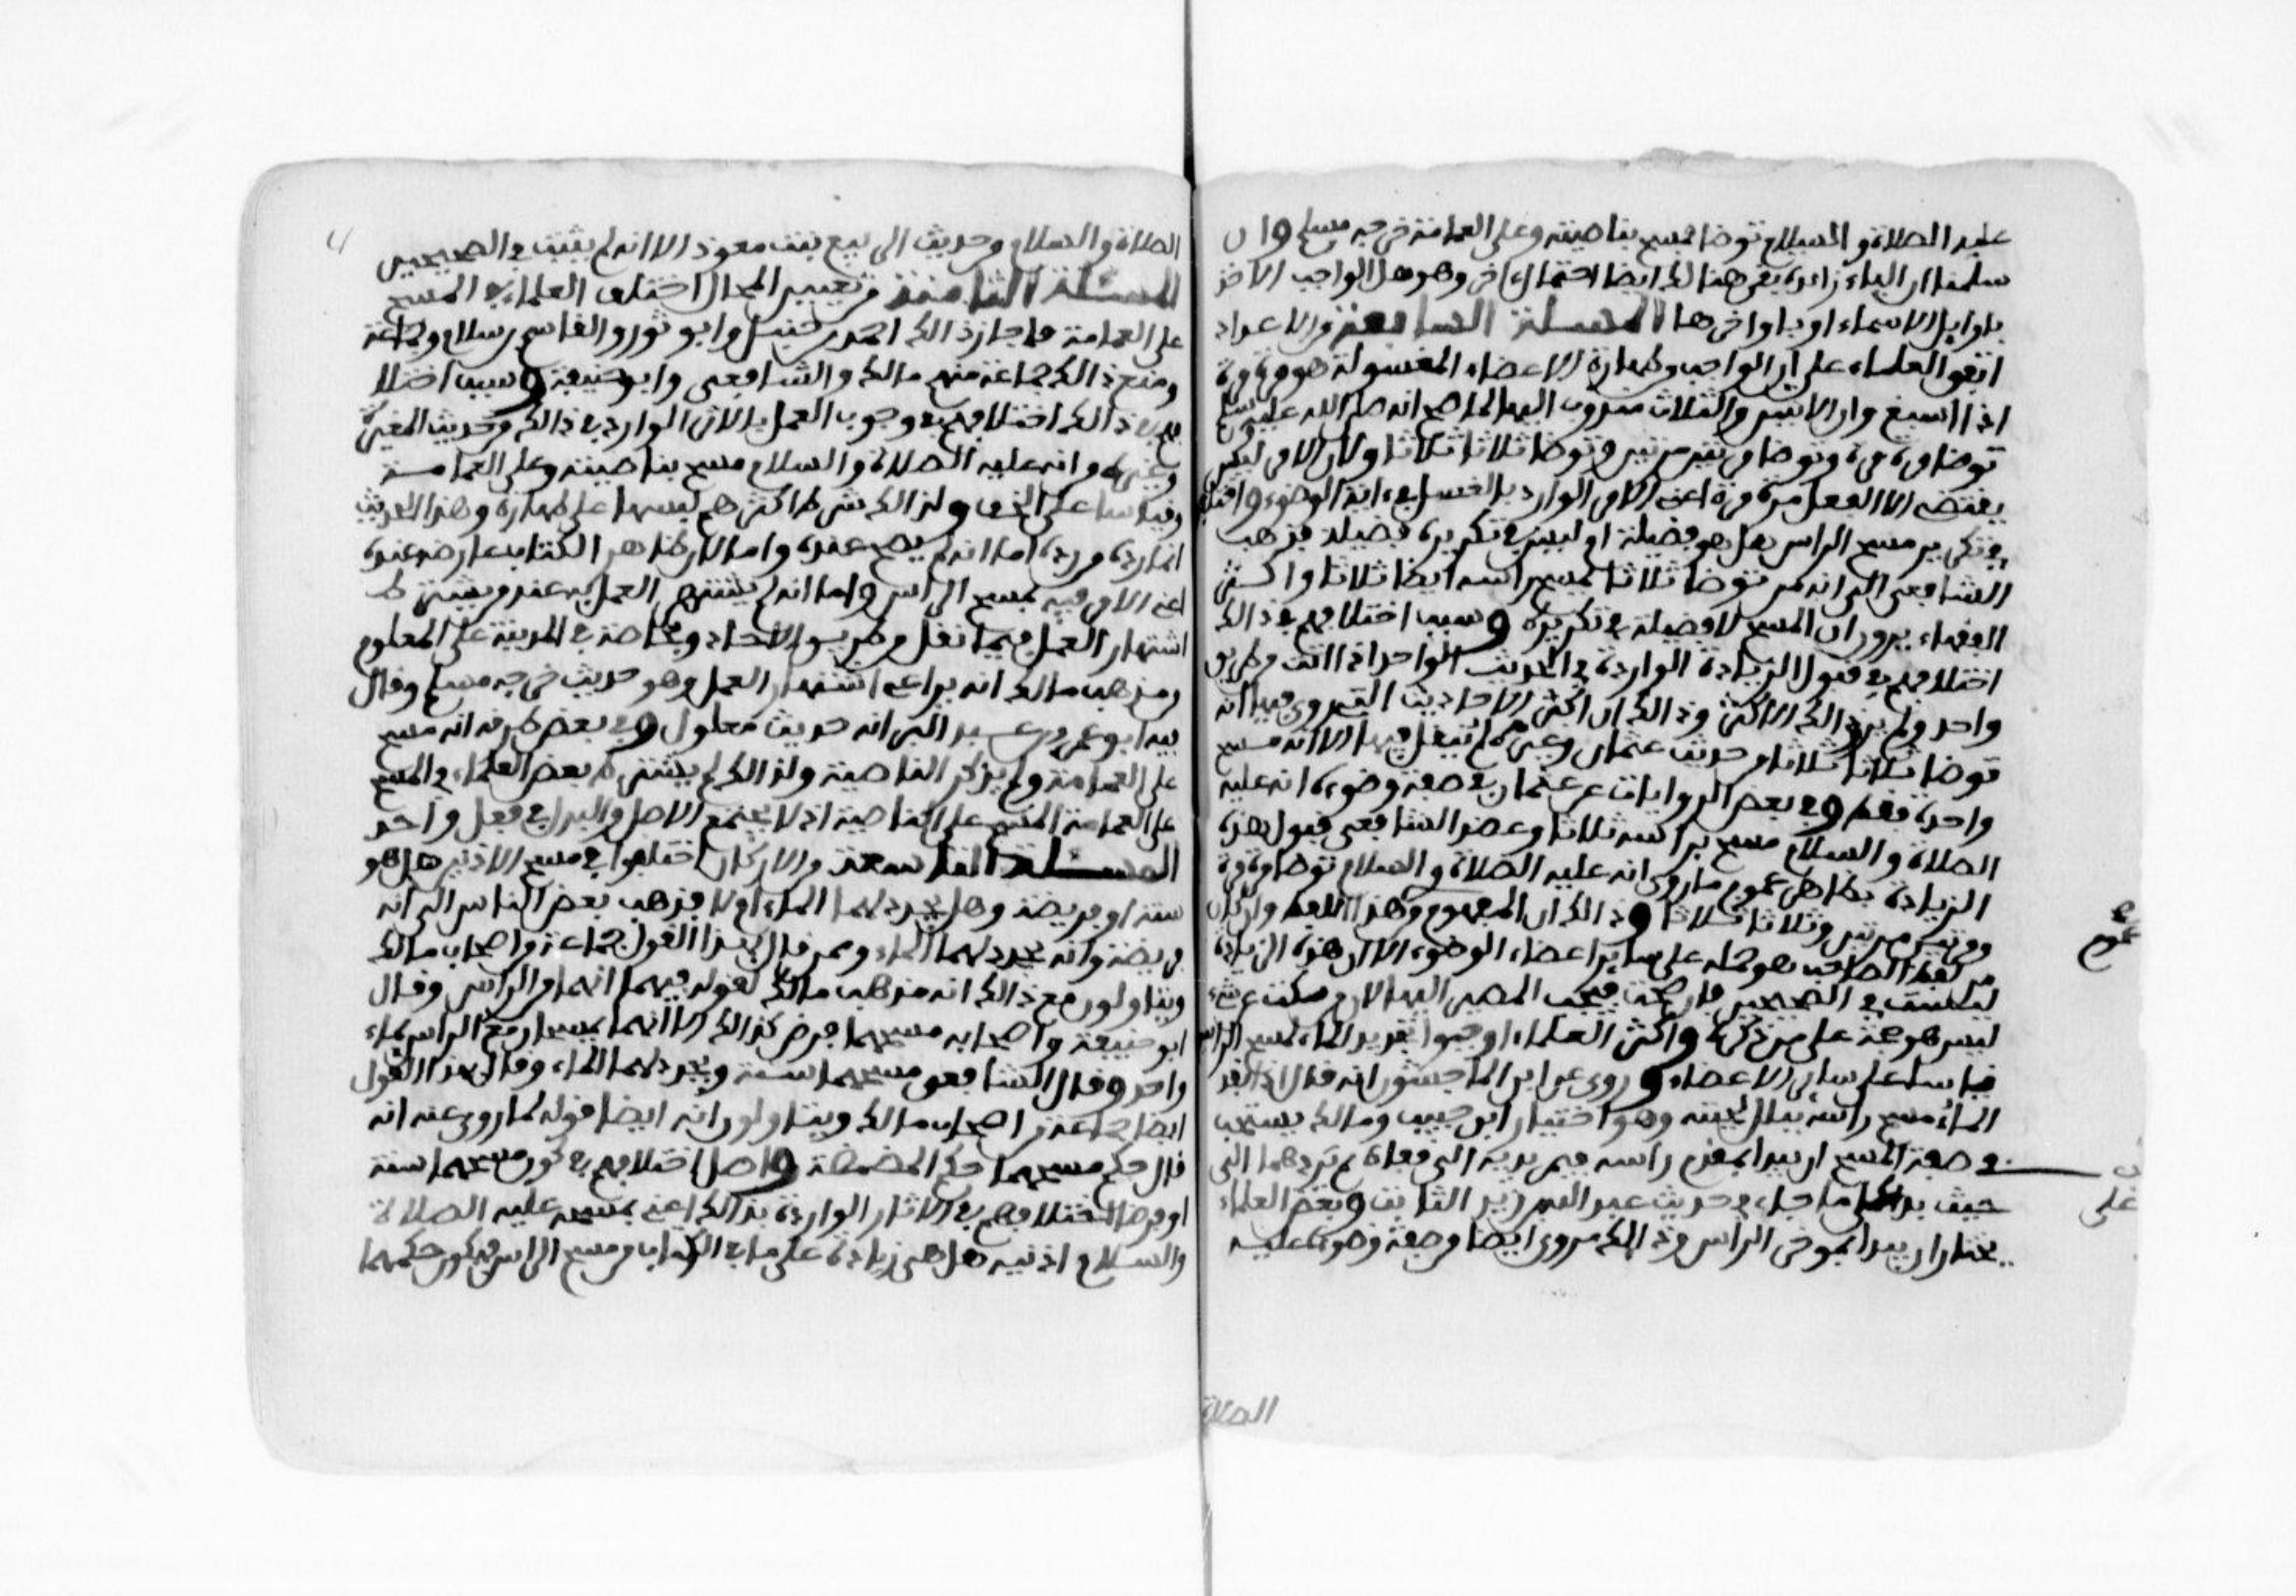 عليه الصلاة والسلام توضا فمسح بناصيته وعلى العمامة خرجه مسلم وان
سلمنا ان الباء زائدة بقي هنالك ايضا احتمال اخر وهو هل الواجب الاخذ
باوايل الاسماء او باواخرها المسئلة السابعة من الاعداد
اتفق العلماء على ان الواجب من طهارة الاعضاء المغسولة هو مرة مرة
اذا اسبغ وان الاثنين والثلاث مندوب اليهما لما صح انه صلى الله عليه وسلم
توضا مرة مرة وتوضا مرتين مرتين وتوضا ثلاثا ثلاثا ولان الامر ليس
يقتضي الا الفعل مرة مرة اعني الامر الوارد بالغسل في اية الوضوء واختلفوا
في تكرير مسح الراس هل هو فضيلة ام ليس في تكريره فضيلة فذهب
الشافعي الى انه من توضا ثلاثا ثلاثا يمسح راسه ايضا ثلاثا واكثر
الفقهاء يرون ان المسح لا فضيلة في تكريره وسبب اختلافهم في ذالك
اختلافهم في قبول الزيادة الواردة في الحديث الواحد اذا اتت من طريق
واحد ولم يرد ذالك الاكثر وذالك ان اكثر الاحاديث التي روي فيها انه
توضا ثلاثا ثلاثا من حديث عثمان وغيره لم ينقل فيها الا انه مسح
واحدة فقط وفي بعض الروايات عن عثمان في صفة وضوءه انه عليه
الصلاة والسلام مسح براسه ثلاثا وعضد الشافعي قبول هذه
الزيادة بظاهر عموم ما روي انه عليه الصلاة والسلام توضا مرة مرة
ومرتين مرتين وثلاثا ثلاثا وذالك ان المفهوم من هذا اللفظ وان كان
من لفظ الصاحب هو حمله على ساير اعضاء الوضوء الا ان هذه الزيادة
ليست في الصحيحين فان صحت فيجب المصير اليها لان من سكت عن شيء
ليس هو حجة على من ذكره واكثر العلماء اوجبوا تجديد الماء لمسح الراس
قياسا على سائر الاعضاء وروي عن ابن الماجشون انه قال اذا نفد
الماء مسح راسه ببلل لحيته وهو اختيار ابن حبيب ومالك يستحب
في صفة المسح ان يبدا بمقدم راسه فيمر يديه الى قفاه ثم يردهما الى
حيث بدا على ما جاء في حديث عبد الله بن زيد الثابت وبعض العلماء
يختار ان يبدا بموخر الراس وذالك مروي ايضا من صفة وضوءه عليه
الصلاة
عموم
على
الصلاة والسلام من حديث الربيع بنت معوذ الا انه لم يثبت في الصحيحين
المسئلة الثامنة من تعيين المحال اختلف العلماء في المسح
على العمامة فاجاز ذالك احمد بن حنبل وابو ثور والقاسم بن سلام وجماعة
ومنع ذالك جماعة منهم مالك والشافعي وابو حنيفة وسبب اختلا
فهم في ذالك اختلافهم في وجوب العمل بالاثر الوارد في ذالك من حديث المغيرة
وغيره من انه عليه الصلاة والسلام مسح بناصيته وعلى العمامة
وقياسا على الخف ولذالك شرط اكثرهم لبسها على طهارة وهذا الحديث
انما رده من رده اما انه لم يصح عنده واما لان ظاهر الكتاب عارضه عنده
اعني الامر فيه بمسح الراس واما انه لم يشتهر العمل به عند من يشترط
اشتهار العمل فيما نقل من طريق الاحاد وبخاصة في المدينة على المعلوم
من مذهب مالك انه يراعي اشتهار العمل وهو حديث خرجه مسلم وقال
فيه ابو عمر بن عبد البر انه حديث معلول وفي بعض طرقه انه مسح
على العمامة ولم يذكر الناصية ولذالك لم يشترط بعض العلماء في المسح
على العمامة المسح على الناصية اذ لا يجتمع الاصل والبدل في فعل واحد
المسئلة التاسعة من الاركان اختلفوا في مسح الاذنين هل هو
سنة او فريضة وهل يجدد لهما الماء ام لا فذهب بعض الناس الى انه
فريضة وانه يجدد لهما الماء وممن قال بهذا القول جماعة من اصحاب مالك
ويتاولون مع ذالك انه مذهب مالك لقوله فيهما انهما من الراس وقال
ابو حنيفة واصحابه مسحهما فرض كذالك الا انهما يمسحان مع الراس بماء
واحد وقال الشافعي مسحهما سنة ويجدد لهما الماء وقال بهذا القول
ايضا جماعة من اصحاب مالك ويتاولون انه ايضا قوله لما روي عنه انه
قال حكم مسحهما حكم المضمضة واصل اختلافهم في كون مسحهما سنة
او فرضا اختلافهم في الاثار الواردة بذالك اعني بمسحه عليه الصلاة
والسلام اذنيه هل هي زيادة على ما في الكتاب من مسح الراس فيكون حكمهما